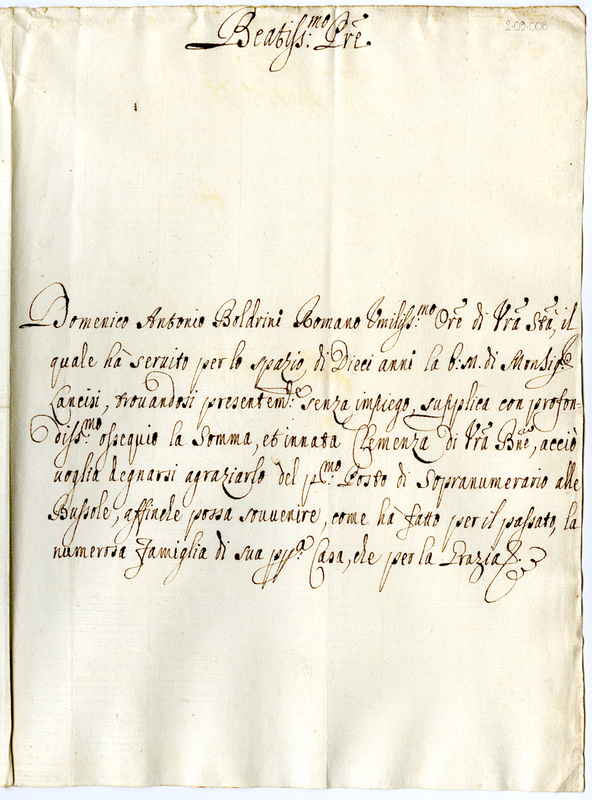 2-09-008
Beatiss:mo Pre
Domenico Antonio Boldrini Romano Umiliss:mo Ore di Vra Stà, il
quale hà servito per lo spazio, di Dieci anni la b:m: di Monsig.re
Lancisi, trovandosi presentem:te senza impiego, supplica con profon-
diss:mo ossequio la Somma, et innata Clemenza di Vra Bne, acciò
voglia degnarsi agraziarlo del p:mo Posto di Sopranumerario alle
Bussole, affinche possa souvenire, come hà fatto per il passato, la
numerosa famiglia di sua ppa Casa, che per la Grazia &.